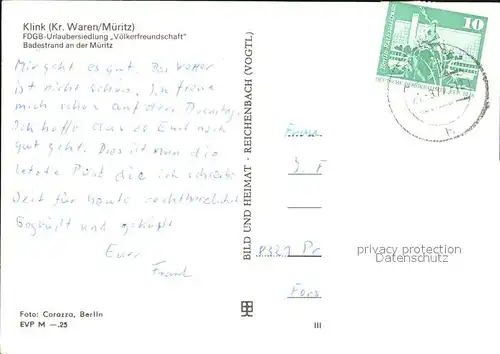 Klink (Kr. Waren/Müritz)
FDGB-Urlaubersiedlung „Völkerfreundschaft"
Badestrand an der Müritz
Mir geht es gut. Das Wetter
ist nicht schön. Ich freue
mich schon auf den Dienstag.
Ich hoffe das es Euch noch
gut geht. Dies ist nun die
letzte Post die ich schreibe
Seit für heute recht herzlichst
Gegrüßt und geküßt
Euer
Frank
Foto: Corazza, Berlin
EVP M —.25
BILD UND HEIMAT · REICHENBACH (VOGTL)
III
10
Fam.
J. F
8321 Pr
privacy protection
Datenschutz